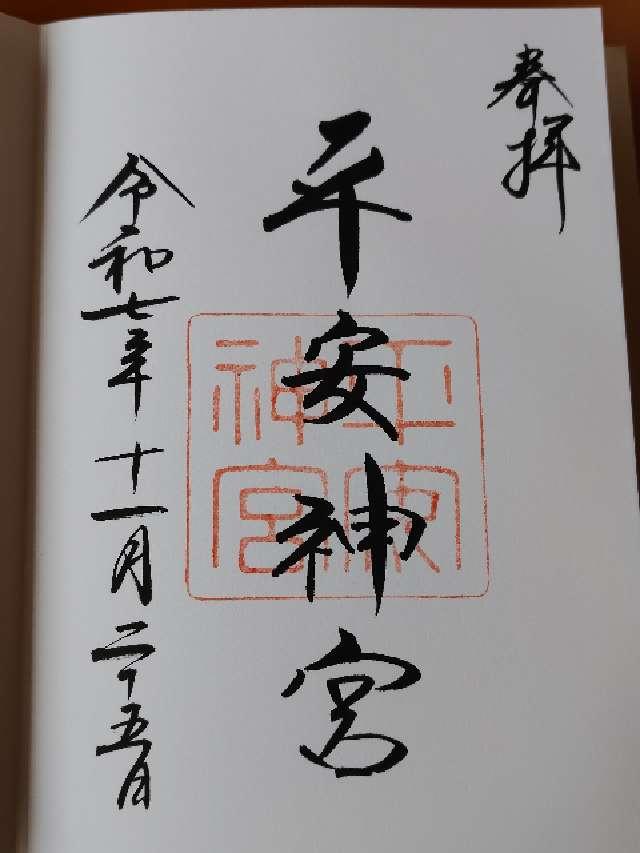 奉拝
平安神宮
平安神宮
令和七年十一月二十五日